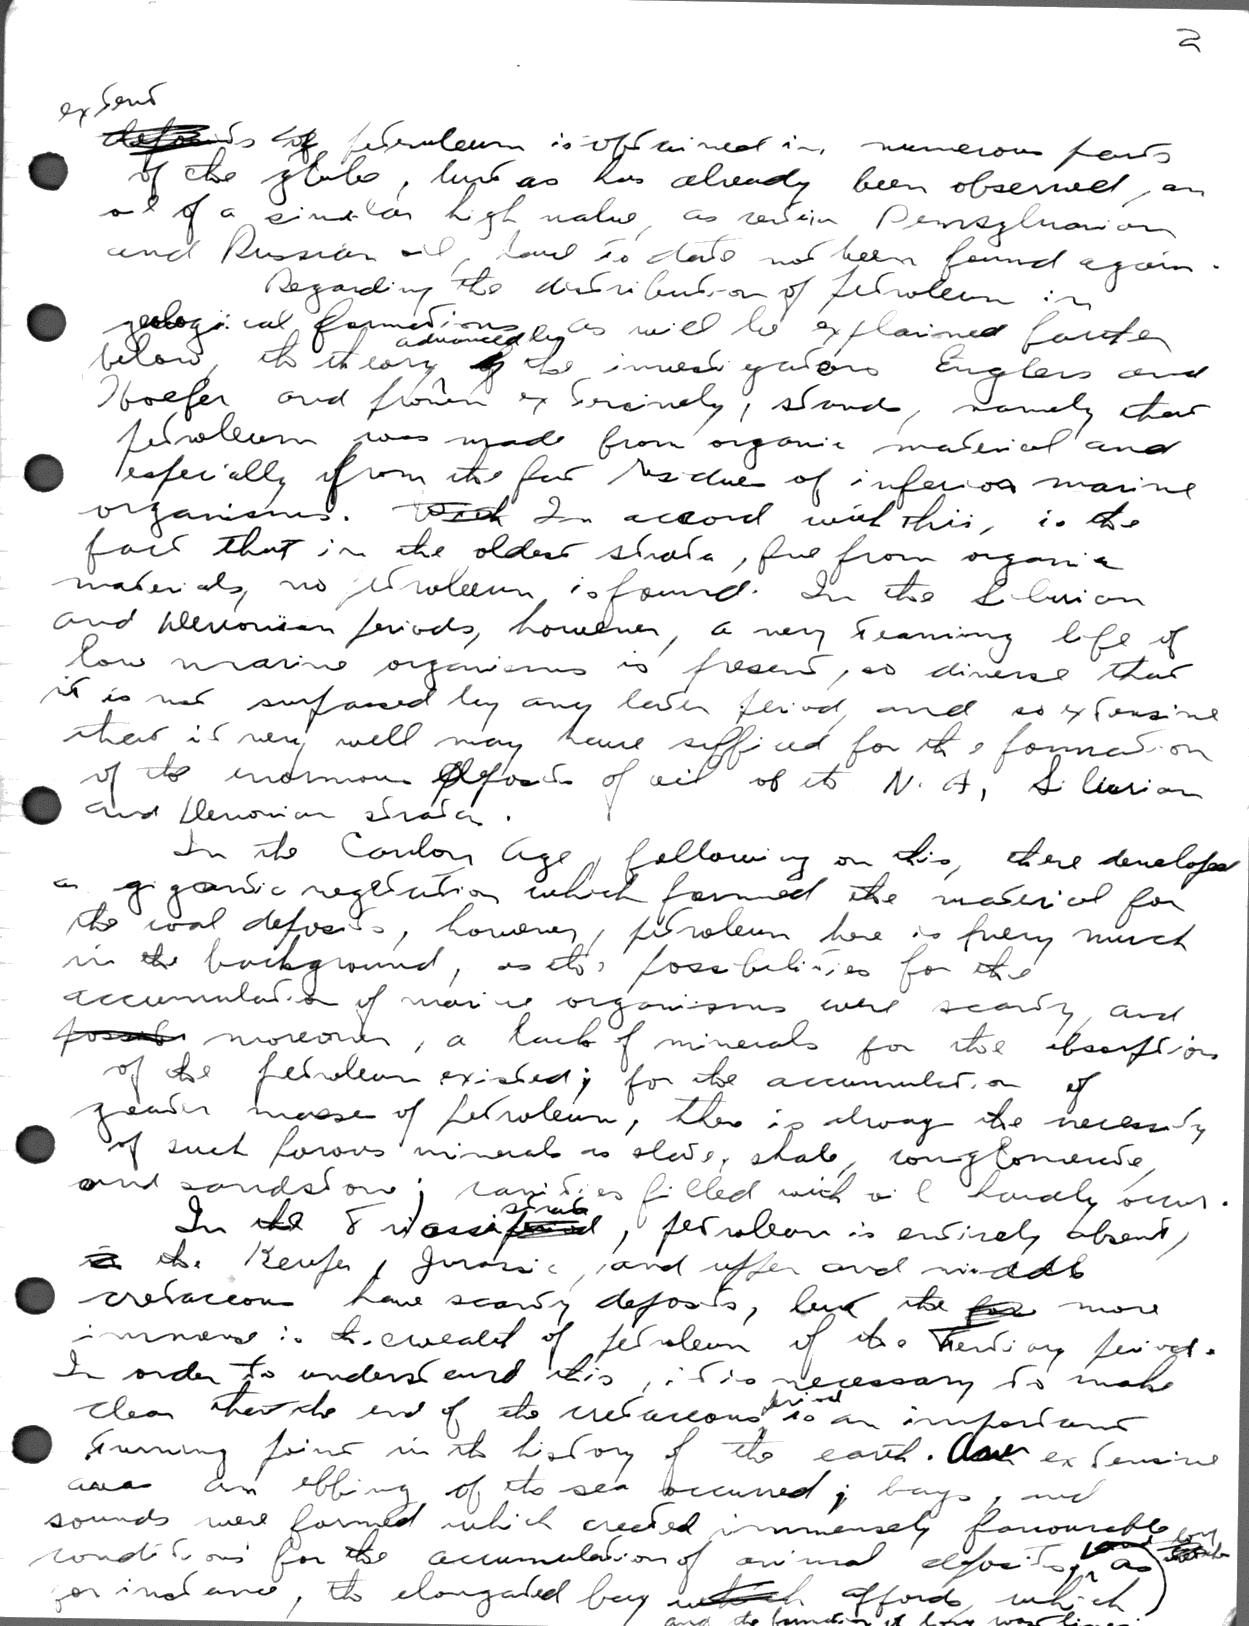 2
extent
deposits of petroleum is obtained in numerous parts
of the globe, but as has already been observed, an
oil of a similar high value, as certain Pennsylvanian
and Russian oil, have to date not been found again.
Regarding the distribution of petroleum in
geological formations, as will be explained further
advanced by
below, the theory of the investigators Englers and
Hoefer and proven extensively, stands, namely that
petroleum was made from organic material and
especially from the fat residues of inferior marine
organisms. In accord with this, is the
fact that in the oldest strata, free from organic
materials, no petroleum is found. In the Silurian
and Devonian periods, however, a very teaming life of
low marine organisms is present, so diverse that
it is not surpassed by any later period and so extensive
that it very well may have sufficed for the formation
of the enormous deposits of oil of the N. A. Silurian
and Devonian strata.
In the Carbon Age, following on this, there developed
a gigantic vegetation which formed the material for
the coal deposits, however, petroleum here is very much
in the background, as the possibilities for the
accumulation of marine organisms were scanty and
possible moreover, a lack of minerals for the absorption
of the petroleum existed; for the accumulation of
greater masses of petroleum, there is always the necessity
of such porous minerals as slate, shale, conglomerate,
and sandstone; cavities filled with oil hardly occur.
strata
In the Triassic period, petroleum is entirely absent,
in the Keuper, Jurassic, and upper and middle
cretaceous have scanty deposits, but the more
immense is the wealth of petroleum of the Tertiary period.
In order to understand this, it is necessary to make
period
clear that the end of the cretaceous is an important
turning point in the history of the earth. Over extensive
areas an ebbing of the sea occurred; bays, and
sounds were formed which created immensely favourable
conditions for the accumulation of animal deposits, as
for instance, the elongated bay which affords which
and the formation of long